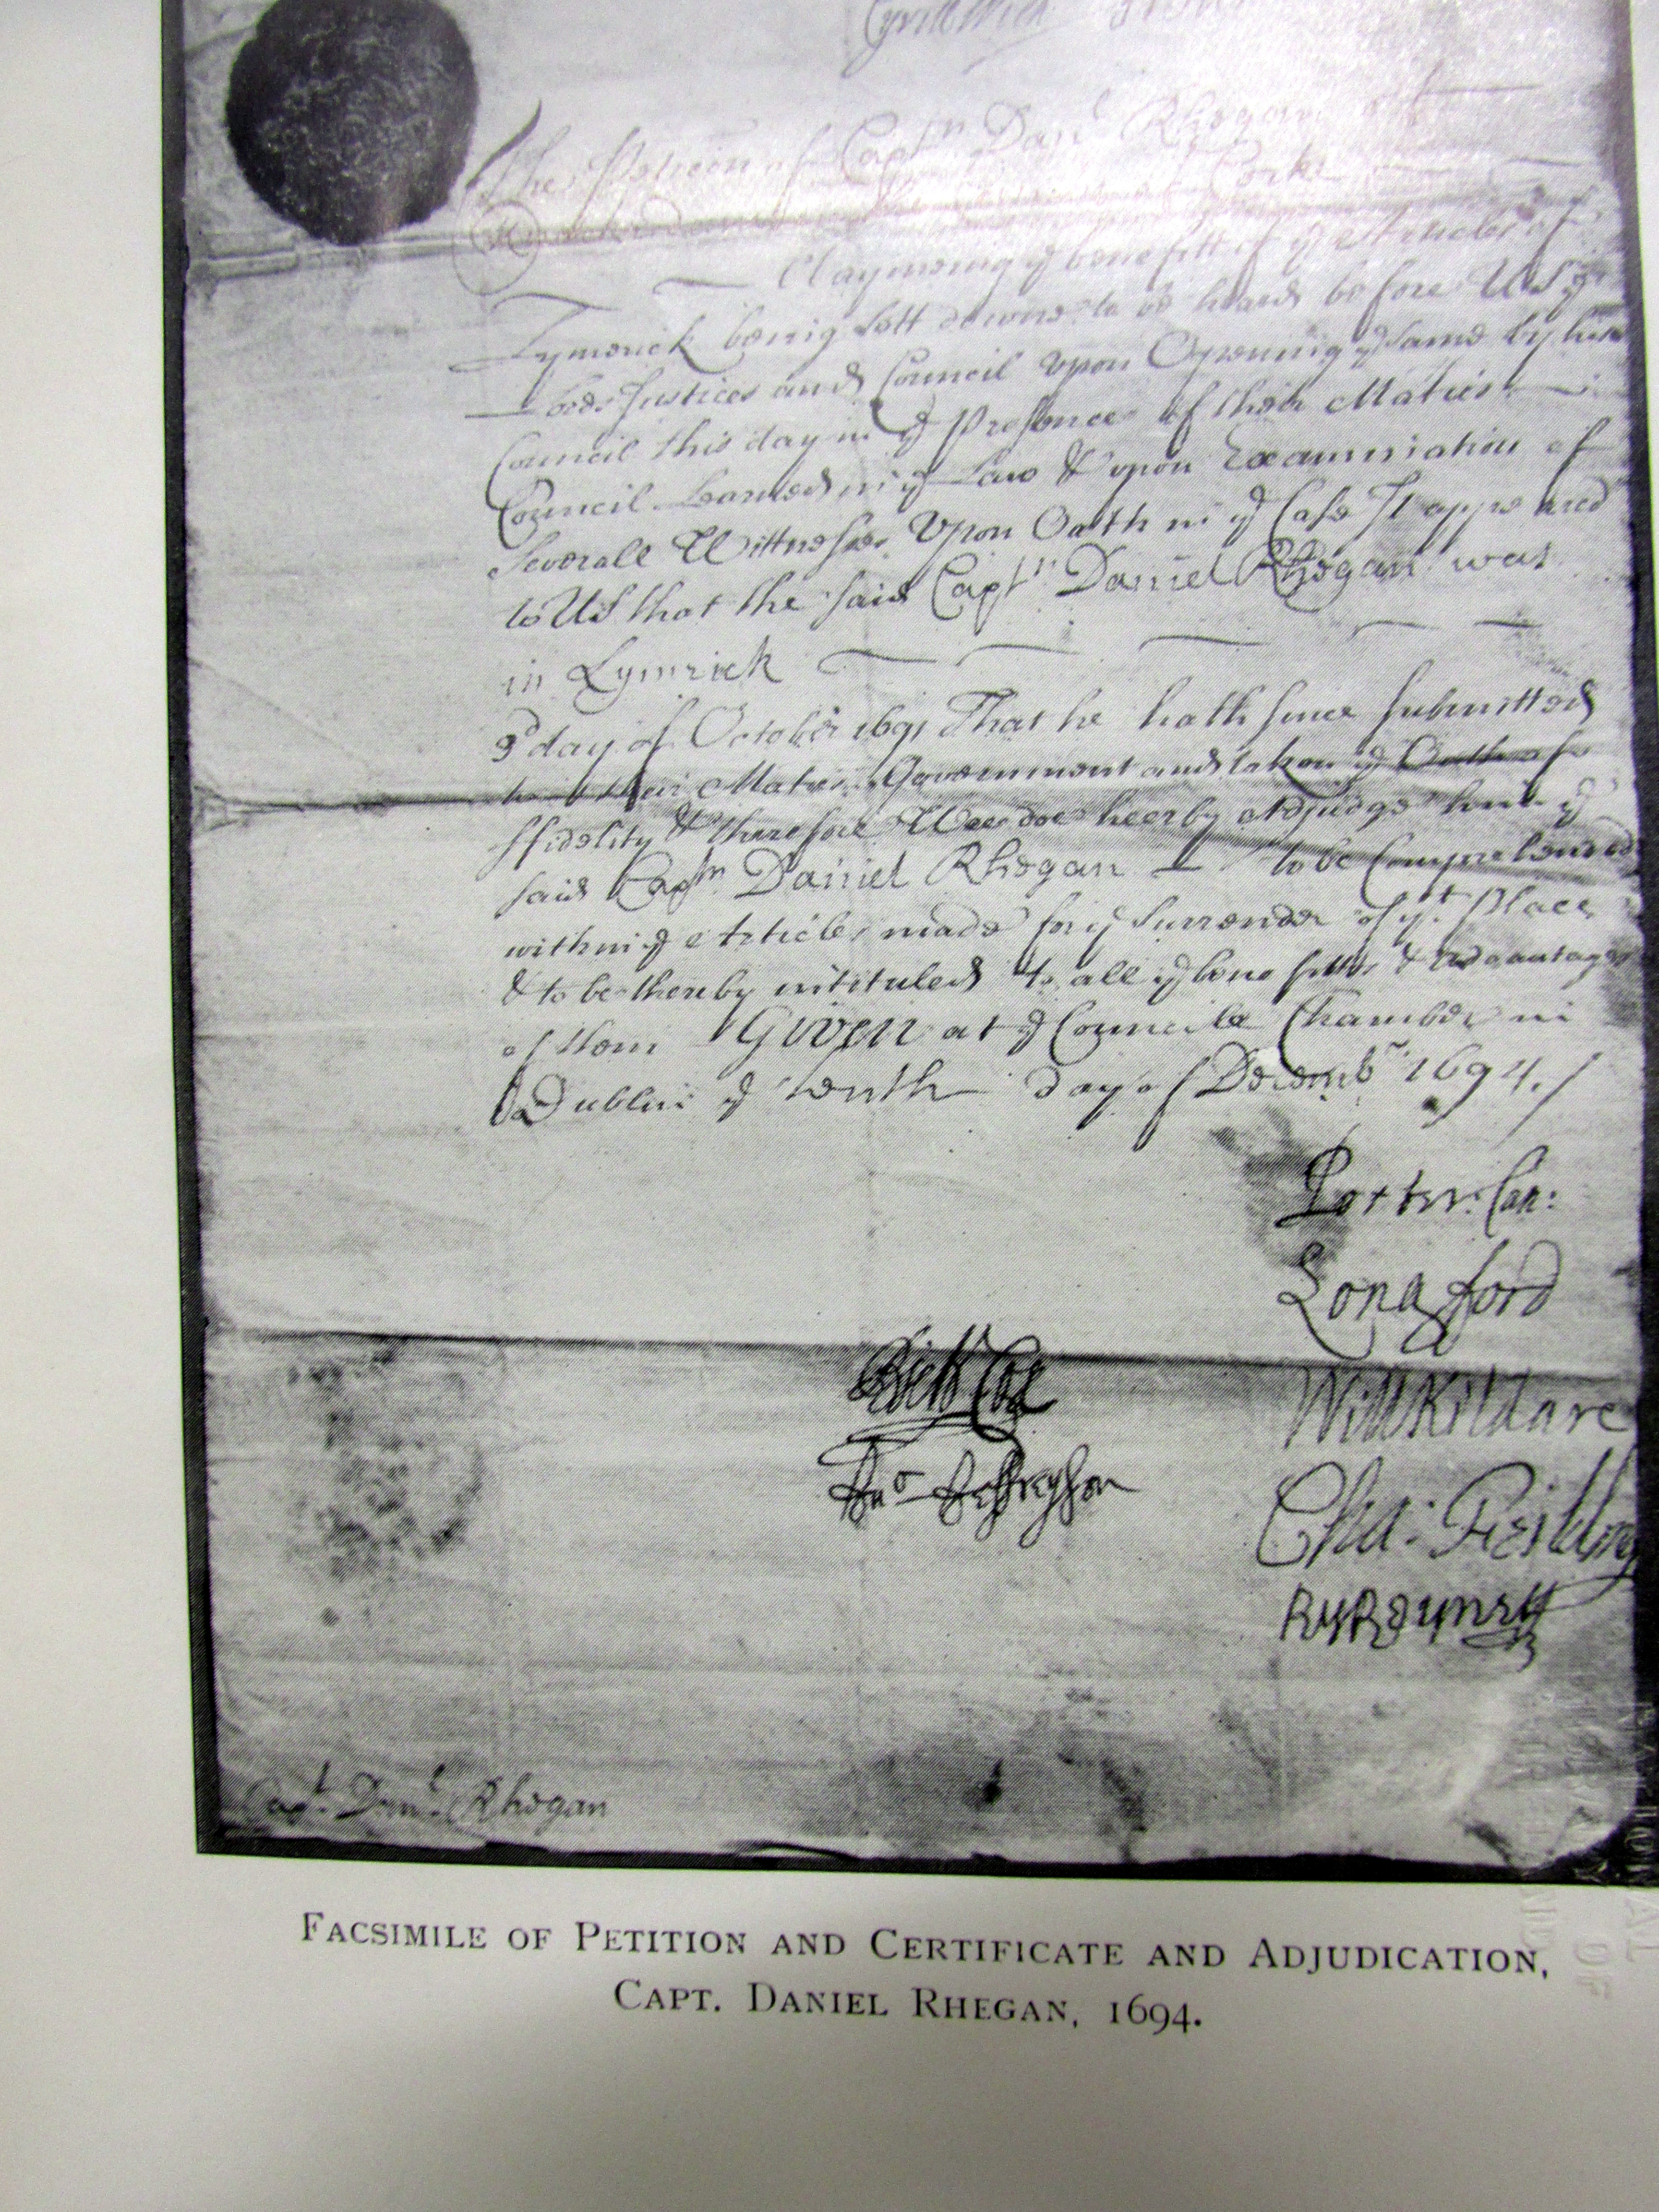 Cyrill Wich
The Peticon of Captn. Danl Rhegan of
Corke
Claymeing ye benefitt of ye Articles of
Lymerick being sett downe to be heard before Us ye
Lords Justices and Council upon Opening ye same by his
Council this day in ye Presence of their Maties
Council Learned in ye Law & upon Examination of
Severall Wittnesses Upon Oath in ye Case It appeared
to Us that the said Captn Daniel Rhegan was
in Lymrick
3d day of October 1691 That he hath since submitted
to their Maties Government and taken ye Oath of
ffidelity & therefore Wee doe heerby Adjudge him ye
said Captn Daniel Rhegan to be Comprehended
within ye Articles made for ye Surrender of yt Place
& to be thereby intituled to all ye benefitts & advantages
of them Given at ye Councile Chamber in
Dublin ye tenth day of Decembr 1694./
Porter: Can:
Longford
Rich Cox
Will Kildare
Cha: Feilding
Capt. Danl. Rhegan
FACSIMILE OF PETITION AND CERTIFICATE AND ADJUDICATION,
CAPT. DANIEL RHEGAN, 1694.